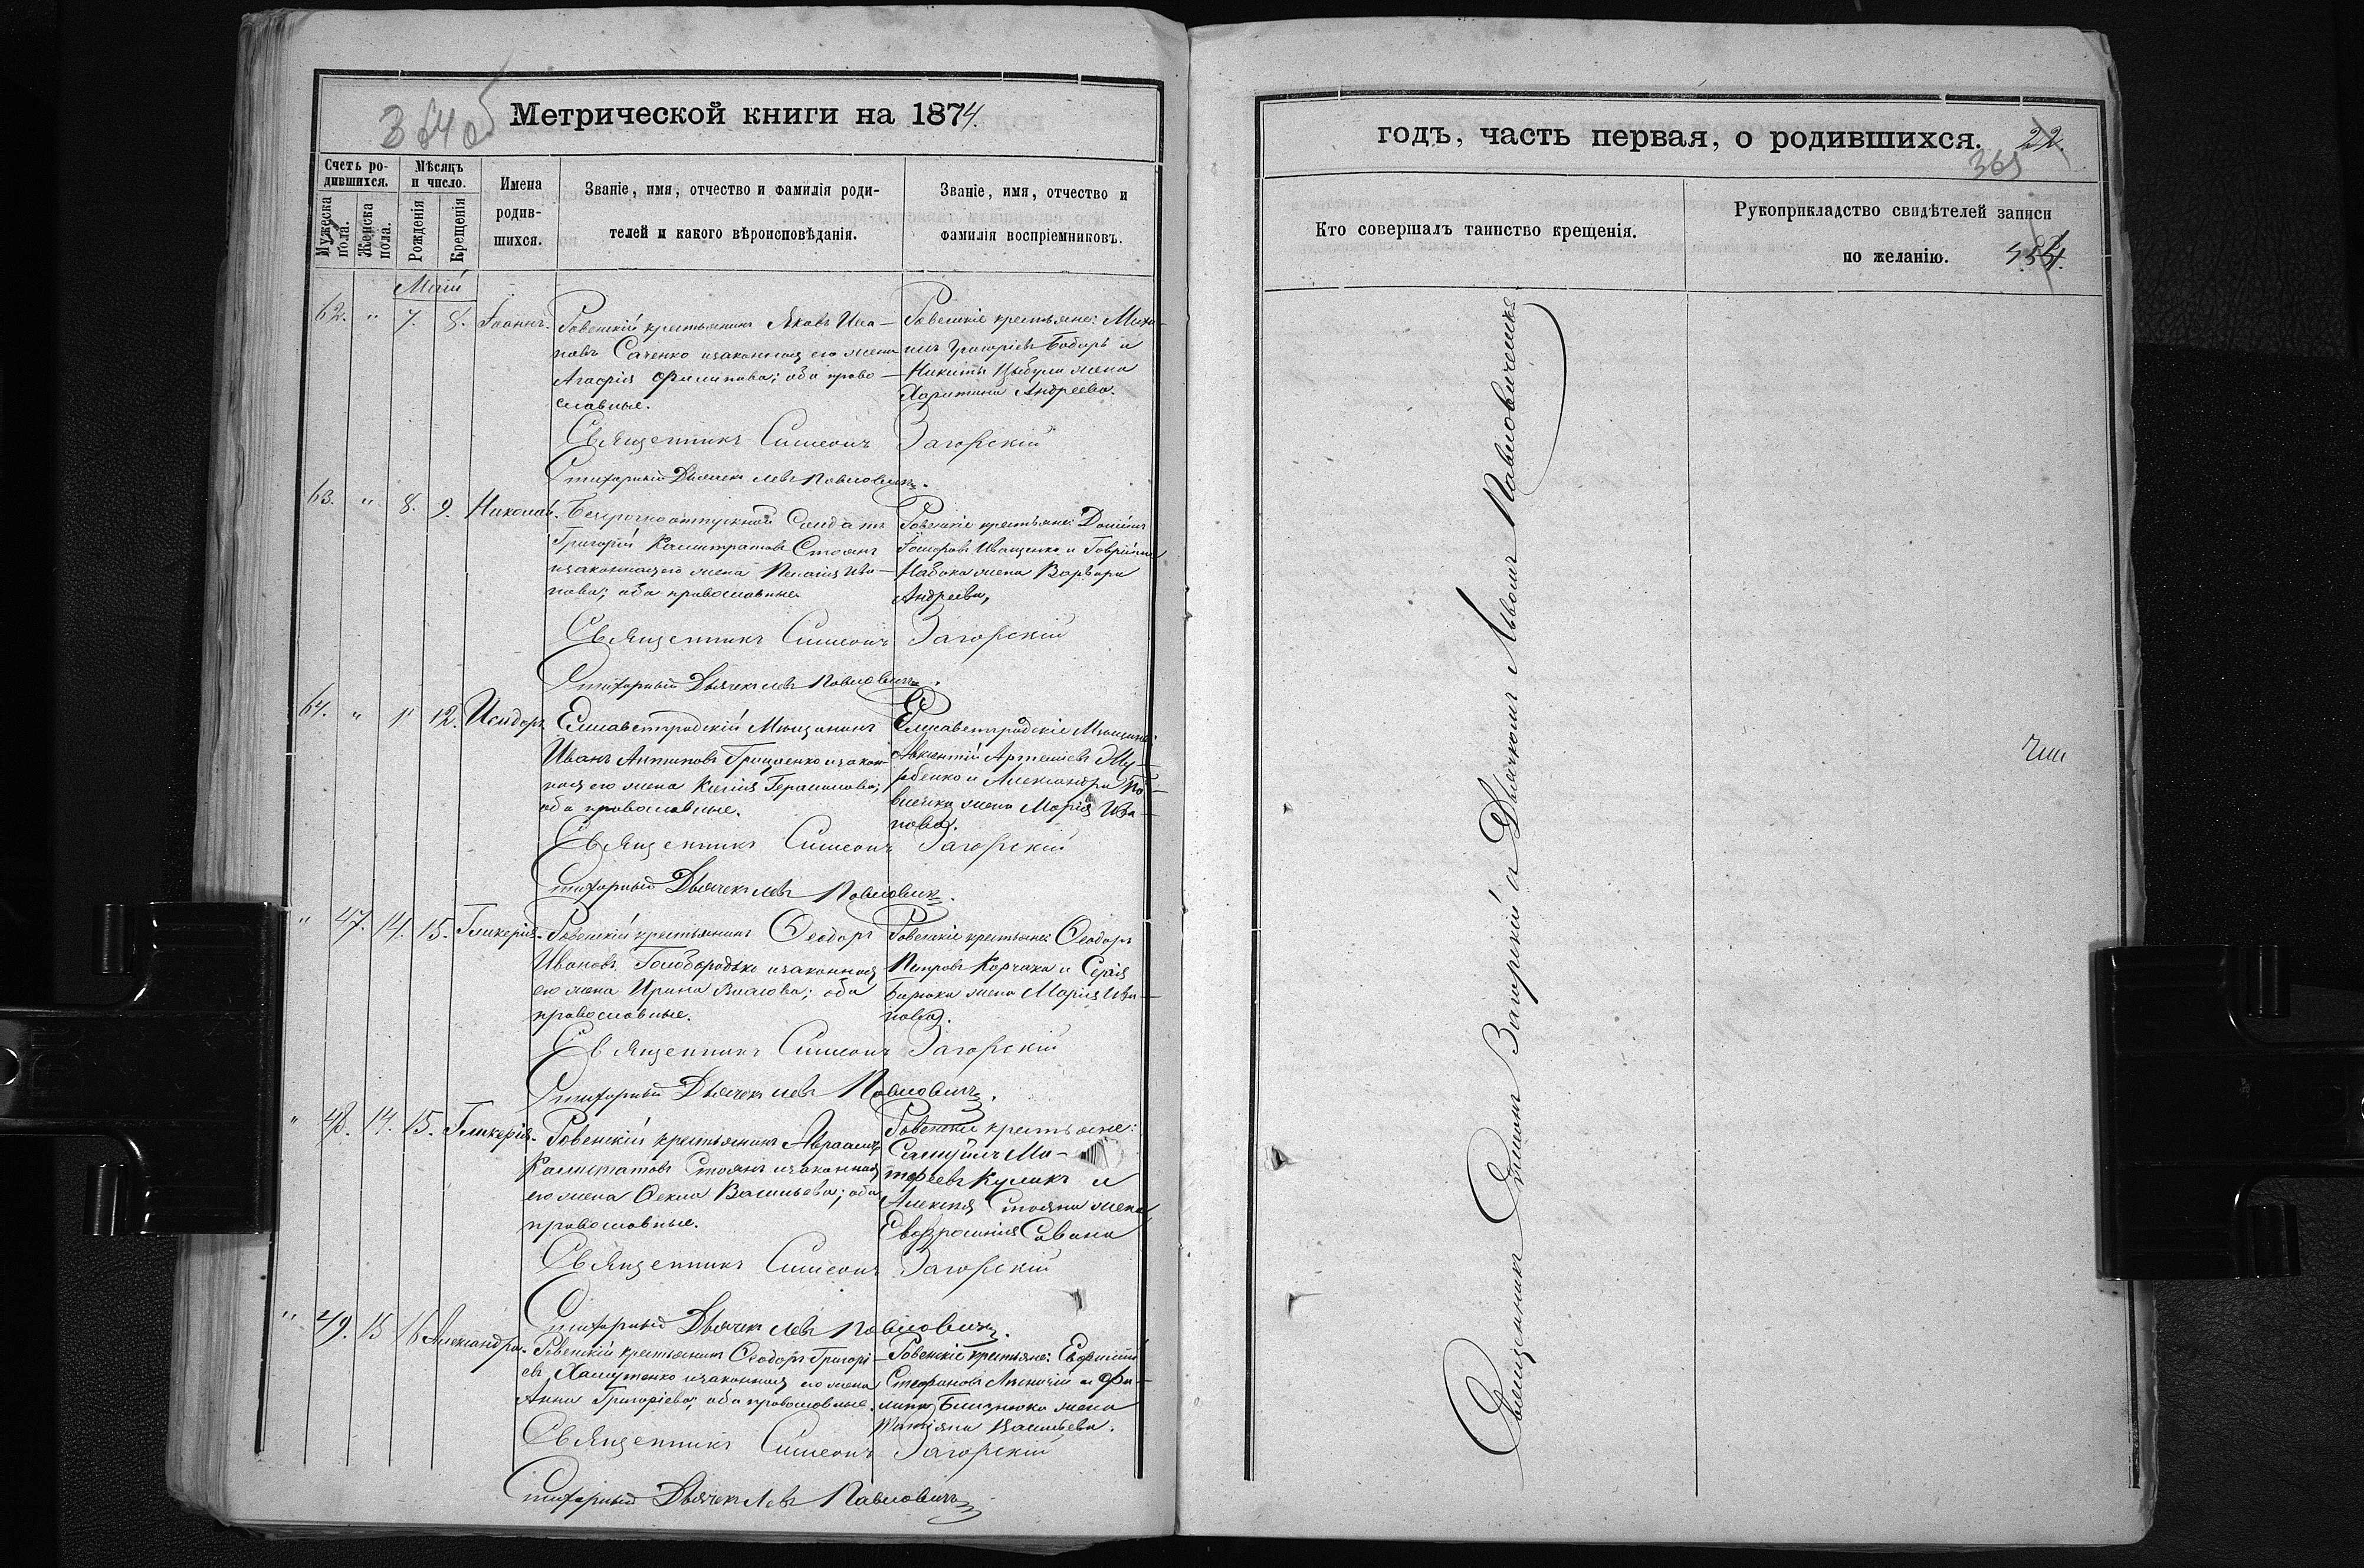 364 об
Метрической книги на 1874.
Счетъ ро-
дившихся.
Мѣсяцъ
и число.
Имена
родив-
шихся.
Званіе, имя, отчество и фамилія роди-
телей и какого вѣроисповѣданія.
Званіе, имя, отчество и
фамилія воспріемниковъ.
Мужеска
пола.
Женска
пола.
Рожденія
Крещенія
Май
62. " 7. 8. Іоаннъ.
Ровенскій крестьянинъ Яковъ Ива-
новъ Саченко изаконная его жена
Агафія Филипова; оба право-
славные.
Ровенскіе крестьяне: Миха-
илъ Григоріевъ Бобырь и
Никиты Цыбули жена
Харитина Андреева.
Священникъ Симеонъ Загорскій
Стихарный Дьячекъ Левъ Павловичъ.
63. " 8. 9. Николай.
Безсрочноотпускной Солдатъ
Григорій Калистратовъ Стоянъ
изаконная его жена Пелагія Ива-
нова; оба православные
Ровенскіе крестьяне: Даніилъ
Іващенко и Гавріила
Набока жена Варвара
Андреева,
Священникъ Симеонъ Загорскій
Стихарный Дьячекъ Левъ Павловичъ.
64. " 11 12. Исидоръ
Елисаветградскій Мѣщанинъ
Иванъ Антиповъ Грищенко изакон-
ная его жена Килія Герасимова;
оба православные.
Елисаветградскіе Мѣщане:
Авксентій Артемьевъ
и Александра
жена Марія Ива-
нова.
Священникъ Симеонъ Загорскій
Стихарный Дьячекъ Левъ Павловичъ.
" 47. 14. 15. Гликерія.
Ровенскій крестьянинъ Ѳеодоръ
Ивановъ Голобородько изаконная
его жена Ирина Власова; оба
православные.
Ровенскіе крестьяне: Ѳеодоръ
Петровъ Корчака и Сергія
Бирюка жена Марія Ива-
нова.
Священникъ Симеонъ Загорскій
Стихарный Дьячекъ Левъ Павловичъ.
" 48. 14. 15. Гликерія.
Ровенскій крестьянинъ Авраамъ
Калистратовъ Стоянъ изаконная
его жена Ѳекла Васильева; оба
православные.
Ровенскіе крестьяне:
Самуилъ Ма-
тфеевъ Куликъ и
Алексія Стояна жена
Евфросинія Савина
Священникъ Симеонъ Загорскій
Стихарный Дьячекъ Левъ Павловичъ.
" 49. 15 16 Александра.
Ровенскій крестьянинъ Ѳеодоръ Григорі-
евъ Хамутенко изаконная его жена
Анна Григоріева; оба православные.
Ровенскіе крестьяне: Евфимій
Стефановъ и Фи-
липа Близнюка жена
Татіяна Васильева.
Священникъ Симеонъ Загорскій
Стихарный Дьячекъ Левъ Павловичъ
годъ, часть первая, о родившихся.
22.
365
Кто совершалъ таинство крещенія.
Рукоприкладство свидѣтелей записи
по желанію.
Священникъ Симеонъ Загорскій и Дьячкомъ Львомъ Павловичемъ